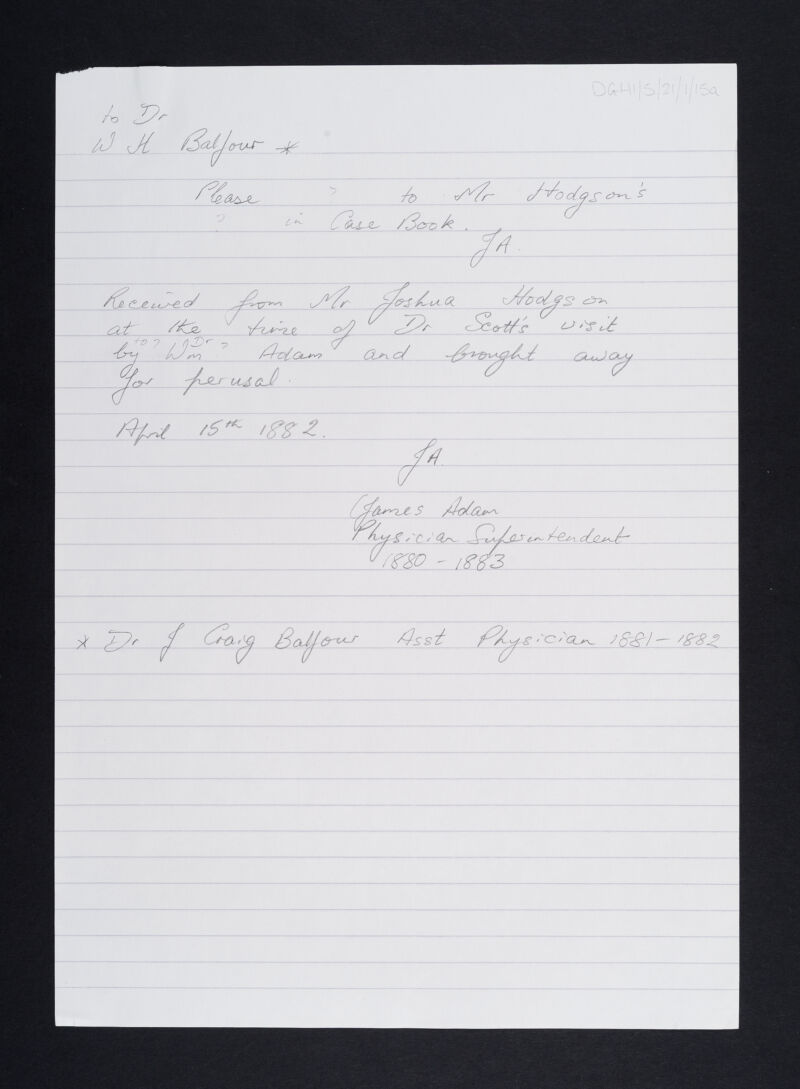 DGH1/5/21/1/15a
to Dr
W H Balfour *
Please ? to Mr Hodgson's
? in Case Book.
JA.
Received from Mr Joshua Hodgson
at the time of Dr Scott's visit
to? Dr
by Wm ? Adam and brought away
for perusal.
April 15th 1882.
JA.
(James Adam
Physician Superintendent
1880 - 1883
* Dr J Craig Balfour Asst Physician 1881 - 1882